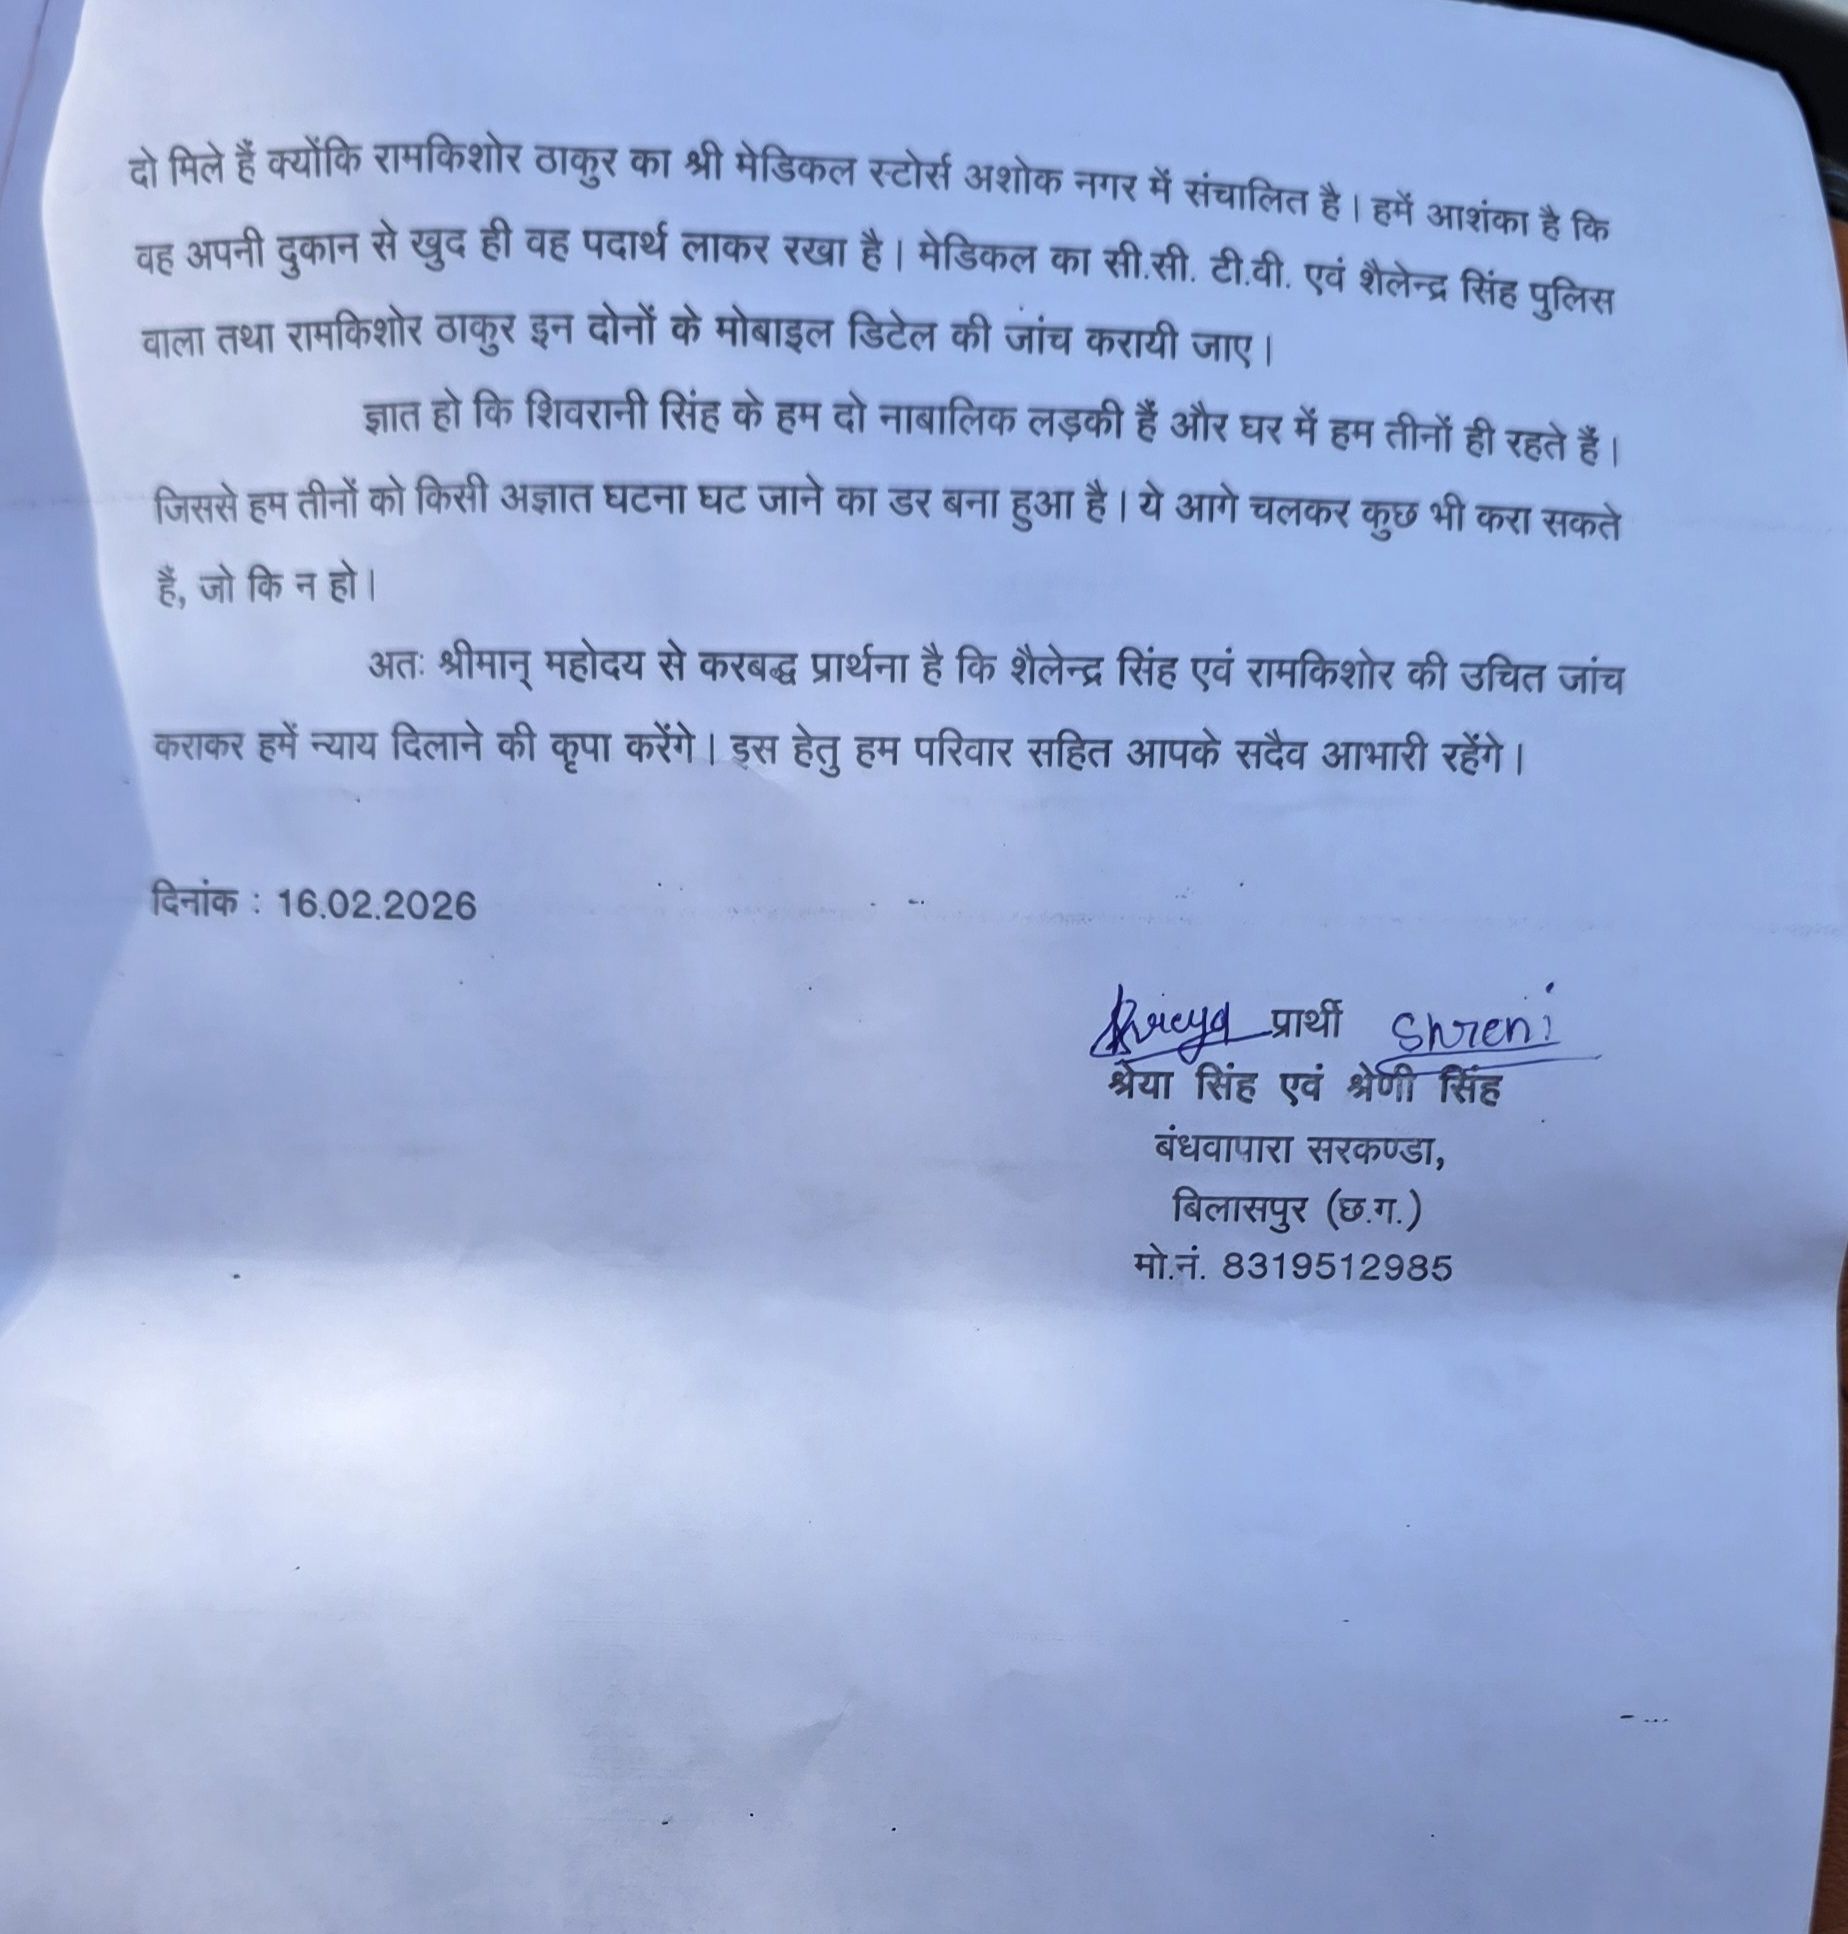 दो मिले हैं क्योंकि रामकिशोर ठाकुर का श्री मेडिकल स्टोर्स अशोक नगर में संचालित है। हमें आशंका है कि
वह अपनी दुकान से खुद ही वह पदार्थ लाकर रखा है। मेडिकल का सी.सी. टी.वी. एवं शैलेन्द्र सिंह पुलिस
वाला तथा रामकिशोर ठाकुर इन दोनों के मोबाइल डिटेल की जांच करायी जाए।
ज्ञात हो कि शिवरानी सिंह के हम दो नाबालिक लड़की हैं और घर में हम तीनों ही रहते हैं।
जिससे हम तीनों को किसी अज्ञात घटना घट जाने का डर बना हुआ है। ये आगे चलकर कुछ भी करा सकते
हैं, जो कि न हो।
अतः श्रीमान् महोदय से करबद्ध प्रार्थना है कि शैलेन्द्र सिंह एवं रामकिशोर की उचित जांच
कराकर हमें न्याय दिलाने की कृपा करेंगे। इस हेतु हम परिवार सहित आपके सदैव आभारी रहेंगे।
दिनांक : 16.02.2026
Shreya प्रार्थी Shreni
श्रेया सिंह एवं श्रेणी सिंह
बंधवापारा सरकण्डा,
बिलासपुर (छ.ग.)
मो.नं. 8319512985